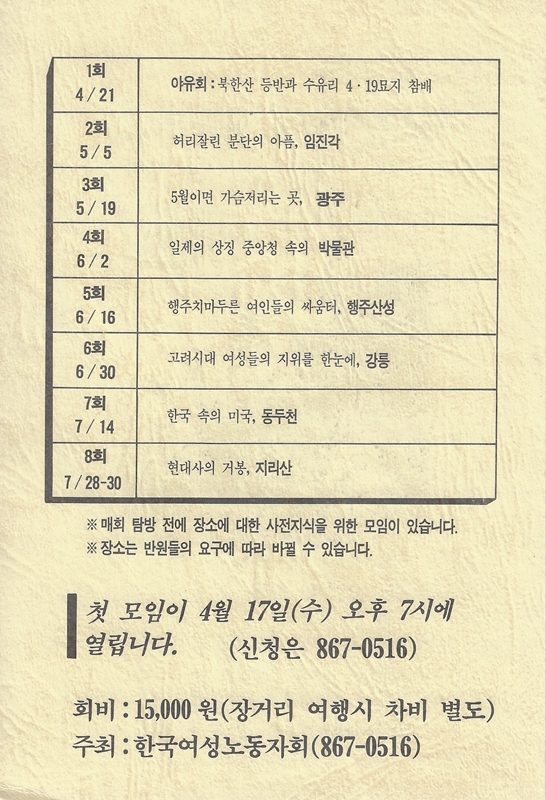 1회
4/21
야유회:북한산 등반과 수유리 4·19묘지 참배
2회
5/5
허리잘린 분단의 아픔, 임진각
3회
5/19
5월이면 가슴저리는 곳, 광주
4회
6/2
일제의 상징 중앙청 속의 박물관
5회
6/16
행주치마두른 여인들의 싸움터, 행주산성
6회
6/30
고려시대 여성들의 지위를 한눈에, 강릉
7회
7/14
한국 속의 미국, 동두천
8회
7/28-30
현대사의 거봉, 지리산
※매회 탐방 전에 장소에 대한 사전지식을 위한 모임이 있습니다.
※장소는 반원들의 요구에 따라 바뀔 수 있습니다.
첫 모임이 4월 17일(수) 오후 7시에
열립니다. (신청은 867-0516)
회비:15,000원(장거리 여행시 차비 별도)
주최:한국여성노동자회(867-0516)